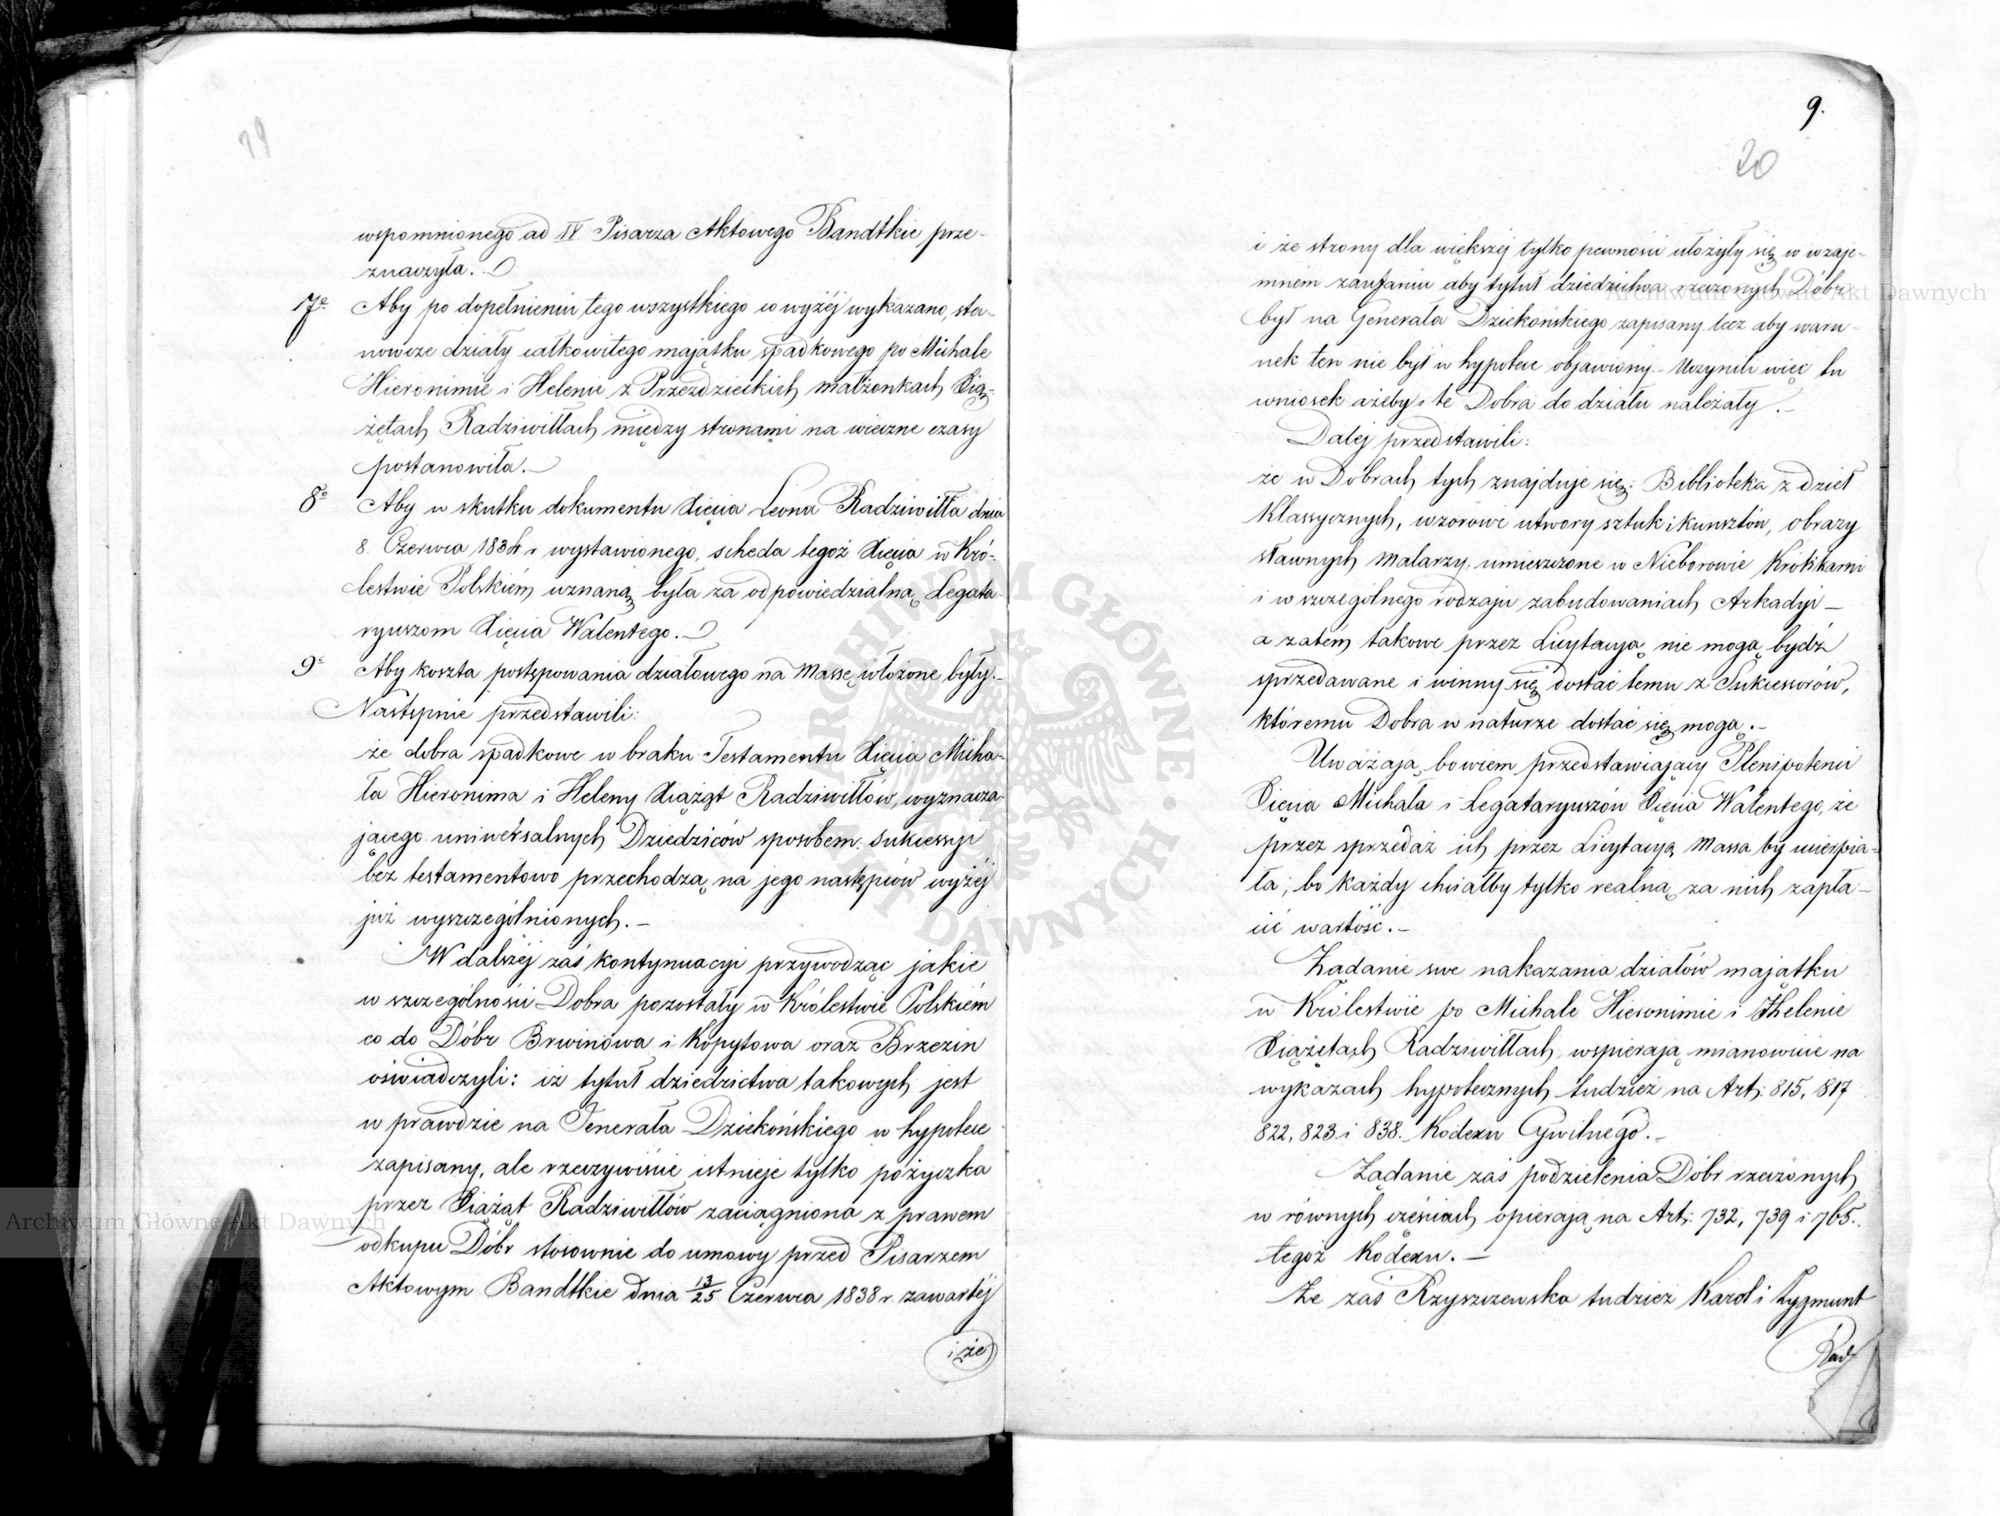 19
wspomnionego ad IV Pisarza Aktowego Bandtkie prze-
znaczyła.
7o Aby po dopełnieniu tego wszystkiego co wyżéj wykazano, sta-
nowcze działy całkowitego majątku spadkowego po Michale
Hieronimie i Helenie z Przezdzieckich małżonkach Xią-
żętach Radziwiłłach między stronami na wieczne czasy
postanowiła.
8o Aby w skutku dokumentu Xięcia Leona Radziwiłła dnia
8. Czerwca 1834 r wystawionego, scheda tegoż Xięcia w Kró-
lestwie Polskiém uznaną była za odpowiedzialną Legata-
ryuszom Xięcia Walentego.
9o Aby koszta postępowania działowego na Massę włożone były.
Następnie przedstawili:
że dobra spadkowe w braku Testamentu Xięcia Micha-
ła Hieronima i Heleny Xiążąt Radziwiłłów, wyznacza-
jącego uniwersalnych Dziedziców sposobem sukcessyi
bez testamentowo przechodzą na jego następców wyżéj
już wyszczególnionych.-
W dalszéj zaś kontynuacyi przywodząc jakie
w szczególności Dobra pozostały w Królestwie Polskiém
co do Dóbr Brwinowa i Kopytowa oraz Brzezin
oświadczyli: iż tytuł dziedzictwa takowych jest
w prawdzie na Jenerała Dziekońskiego w hypotece
zapisany, ale rzeczywiście istnieje tylko pożyczka
przez Xiążąt Radziwiłłów zaciągniona z prawem
odkupu Dóbr stosownie do umowy przed Pisarzem
Aktowym Bandtkie dnia 13/25 Czerwca 1838 r. zawartéj
i że
9.
20
i że strony dla większéj tylko pewności ułożyły się w wzaje-
mném zaufaniu aby tytuł dziedzictwa rzeczonych Dóbr
był na Generała Dziekońskiego zapisany lecz aby waru-
nek ten nie był w hypotece objawiony.- Uczynili więc tu
wniosek ażeby i te Dobra do działu należały.-
Daléj przedstawili:
że w Dobrach tych znajduje się: Biblioteka z dzieł
Klassycznych, wzorowe utwory sztuk i kunsztów, obrazy
sławnych Malarzy umieszczone w Nieborowie Królikarni
i w szczególnego rodzaju zabudowaniach Arkadyi-
a zatém takowe przez Licytacyą nie mogą bydź
sprzedawane i winny się dostać temu z Sukcessorów,
któremu Dobra w naturze dostać się mogą.-
Uważają bowiem przedstawiający Plenipotenci
Xięcia Michała i Legataryuszów Xięcia Walentego, że
przez sprzedaż ich przez Licytacyą Massa by ucierpia-
ła, bo każdy chciałby tylko realną za nich zapła-
cić wartość.-
Żądanie swe nakazania działów majątku
w Królestwie po Michale Hieronimie i Helenie
Xiążętach Radziwiłłach wspierają mianowicie na
wykazach hypotecznych tudzież na Art: 815, 817
822, 823 i 838. Kodexu Cywilnego.-
Żądanie zaś podzielenia Dóbr rzeczonych
w równych częściach opierają na Art: 732, 739 i 765.
tegoż Kodexu.-
Że zaś Rzyszczewska tudzież Karol i Zygmunt
Rad
Archiwum Główne Akt Dawnych
Archiwum Główne Akt Dawnych
ARCHIWUM GŁÓWNE AKT DAWNYCH